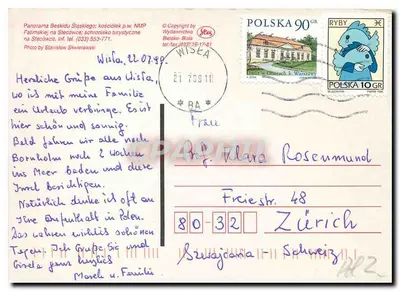 Panorama Beskidu Śląskiego; kościółek p.w. NMP
Fatimskiej na Stecówce; schronisko turystyczne
na Stecówce, inf. tel. (033) 553-771.
Photo by Stanisław Śliwierski
© Copyright by
Wydawnictwo
Bielsko-Biała
Wisła, 22.07.98.
Herzliche Grüße aus Wisła,
wo ich mit meine Familie
ein Urlaub verbringe. Es ist
hier schön und sonnig.
Bald fahren wir alle nach
Bornholm noch 2 Wochen
ins Meer baden und diese
Insel besichtigen.
Natürlich denke ich oft an
Ihre Aufenthalt in Polen.
Das wahren wirklich schönen
Tagen. Ich Grüße Sie und
Gisela ganz herzlich
Marek u. Familie
POLSKA 90 GR
WISŁA
RA
RYBY
POLSKA 10 GR
Frau
Prof. Klara Rosenmund
Freiestr. 48
8032 Zürich
Szwajcaria - Schweiz